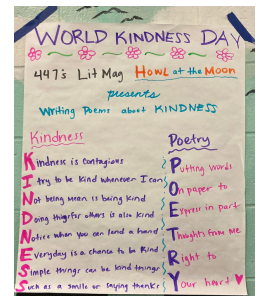 WORLD KINDNESS DAY
447's Lit Mag HOWL at the MOON
presents
Writing Poems about KINDNESS
Kindness
Kindness is contagious
I try to be kind whenever I can
Not being mean is being kind
Doing things for others is also kind
Notice when you can lend a hand
Everyday is a chance to be kind
Simple things can be kind things
Such as a smile or saying thanks
Poetry
Putting words
On paper to
Express in part
Thoughts from me
Right to
Your heart